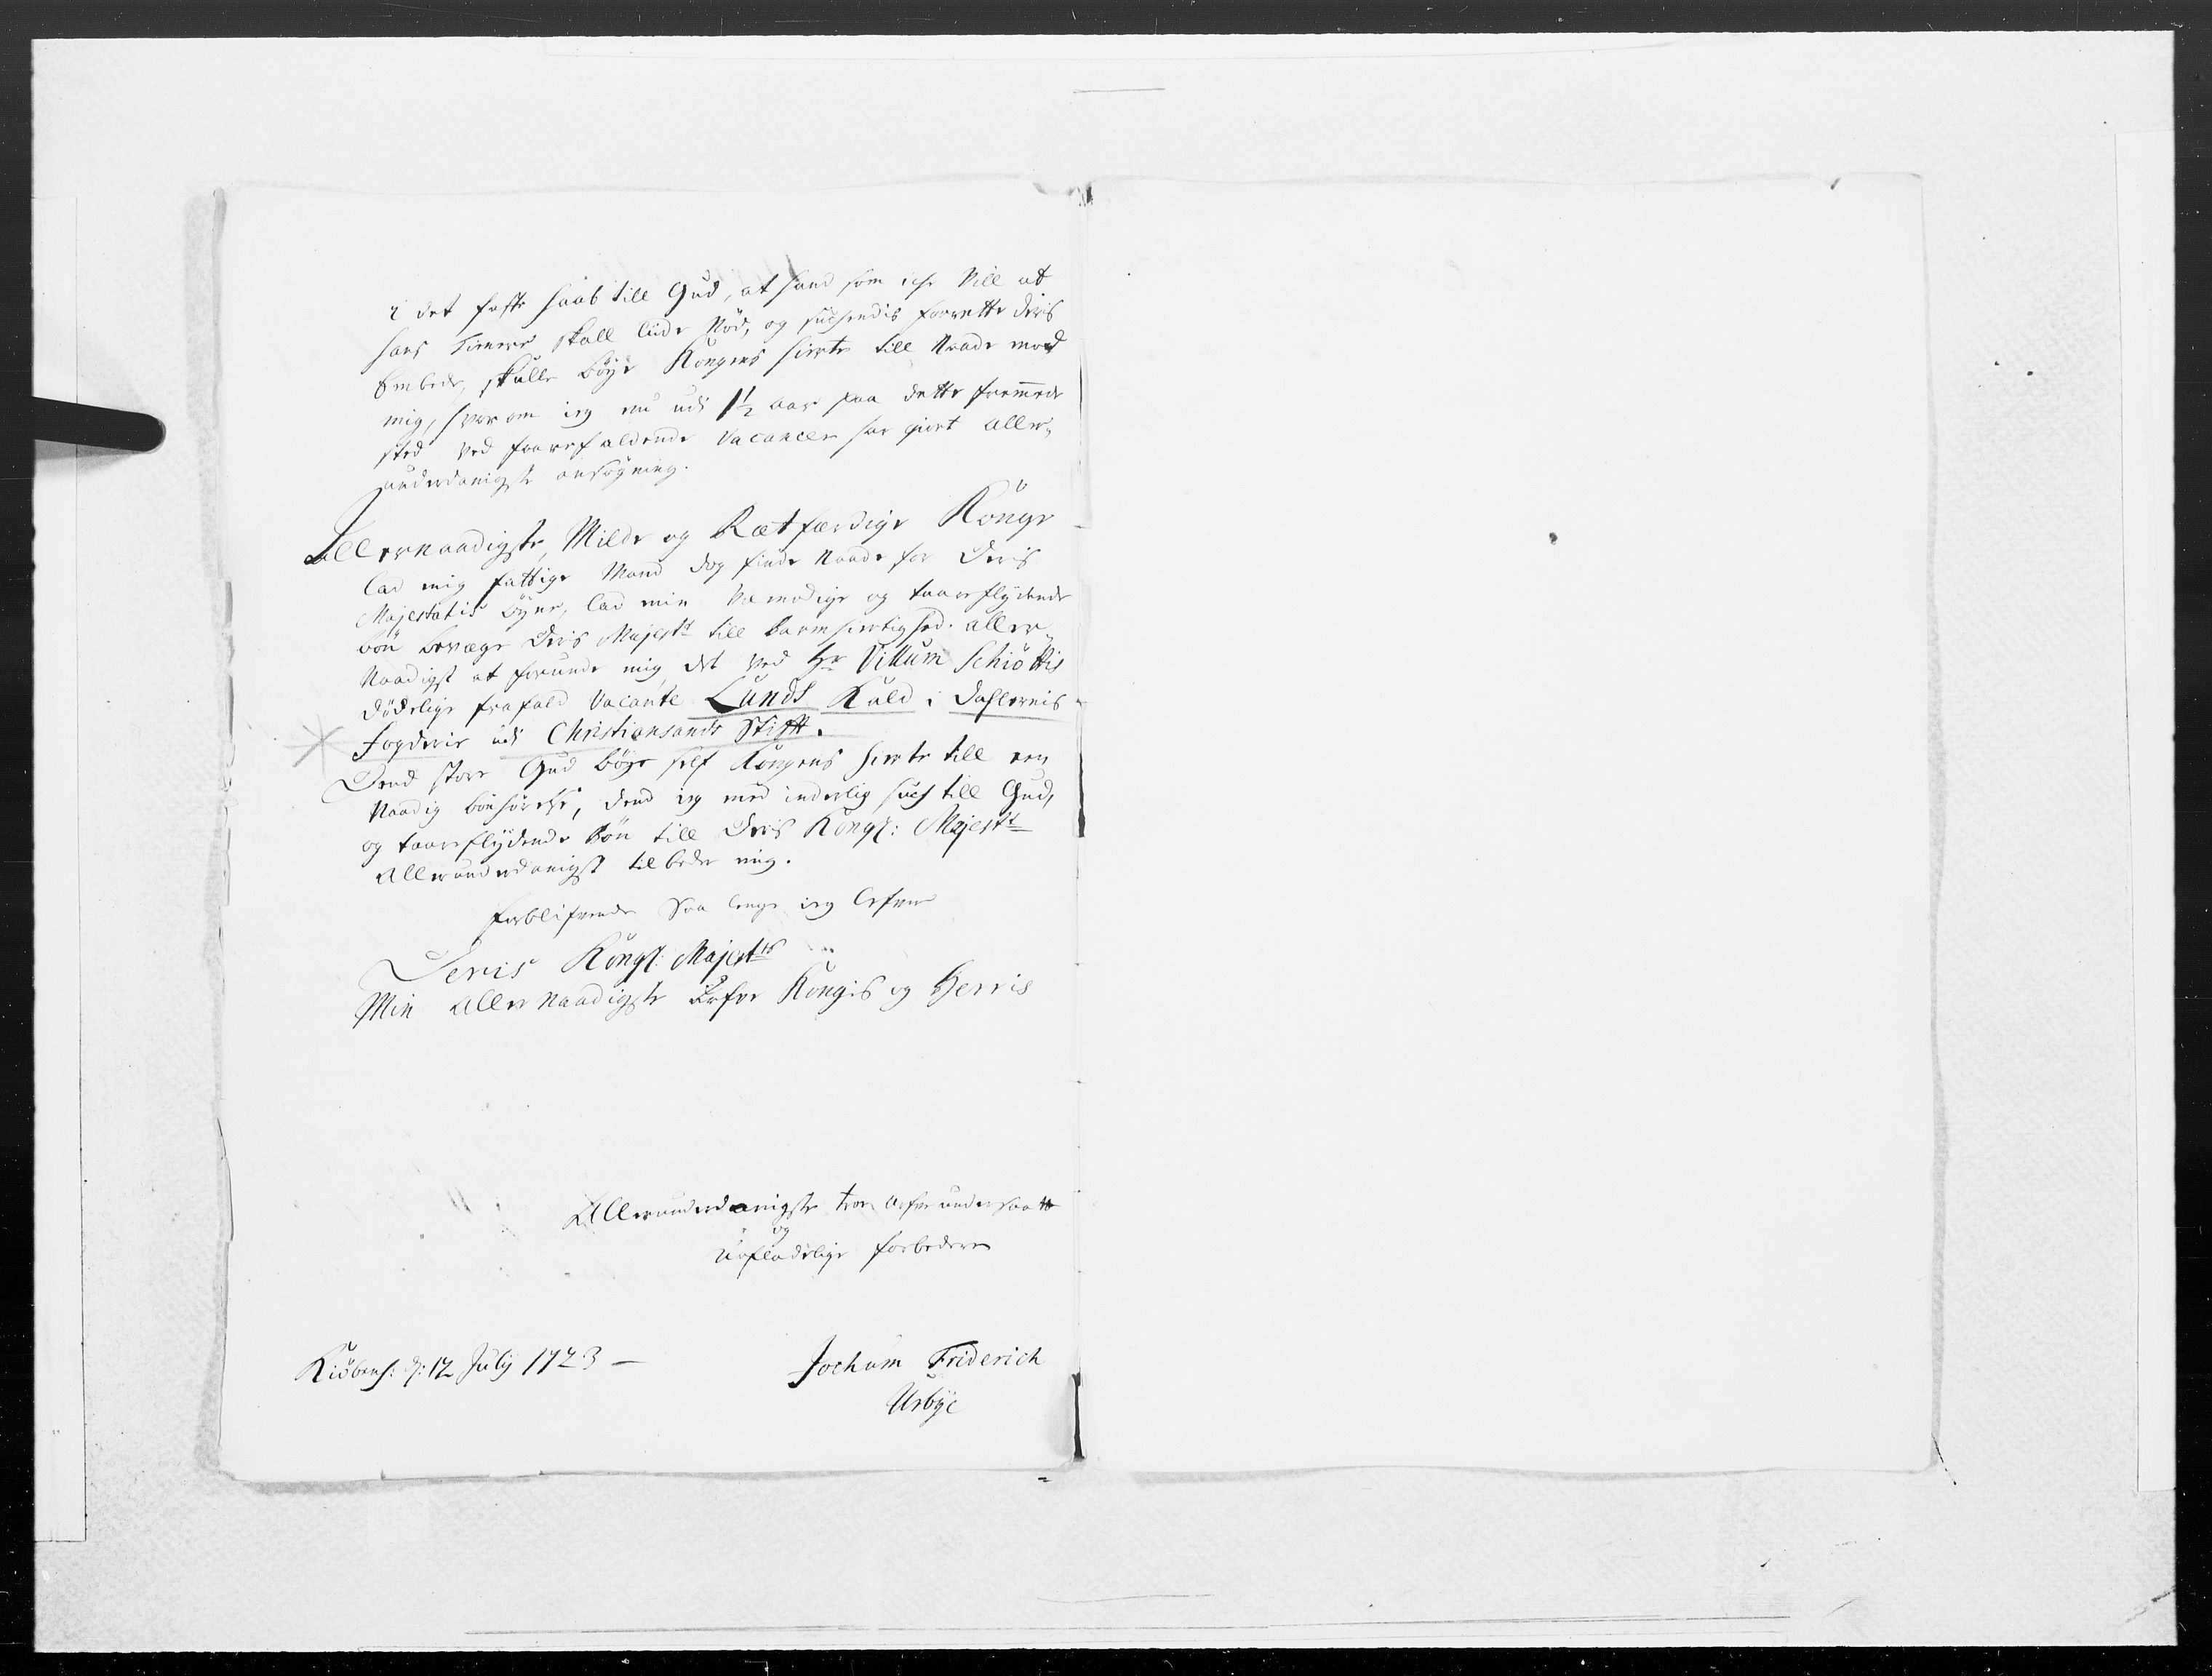 i det faste Haab till Gud, at hand som icke vill at
hans tienere skall liide Nød, og suchendis forrette deris
Embede, skulle bøye Kongens hierte till Naade mod
mig, hvorom ieg nu udi 1½ aar paa dette fremmede
sted ved forrefaldende Vacancer har giort aller,
underdanigste ansøgning.
Allernaadigste, Milde og Rætfærdige Konge
lad mig fattige Mand dog finde Naade for Deris
Majestatis øyne, lad min Vemodige og taareflydende
bøn bevæge Deris Majestt till barmhiertighed. aller-
Naadigst at forunde mig, det ved Hr Villum Schiøttis
dødelige frafald vacante Lunds Kald i Dahlernis
Fogderie udi Christiansands Stifft.
Dend store Gud bøye self Kongens hierte till een
Naadig bønhørelse, dend ieg med inderlig such till Gud,
og taareflydende bøn till Deris Kongl: Majestt
Allerunderdanigst tilbeder mig.
forblifvende saa lenge ieg lefver
Deris Kongl: Majestts
Min Allernaadigste Arfve Kongis og Herris
Allerunderdanigste troe arfve undersaatt
og
uafladelige forbedere
Kiøbenh: d: 12 July 1723 —
Jochum Friderich
Urbye